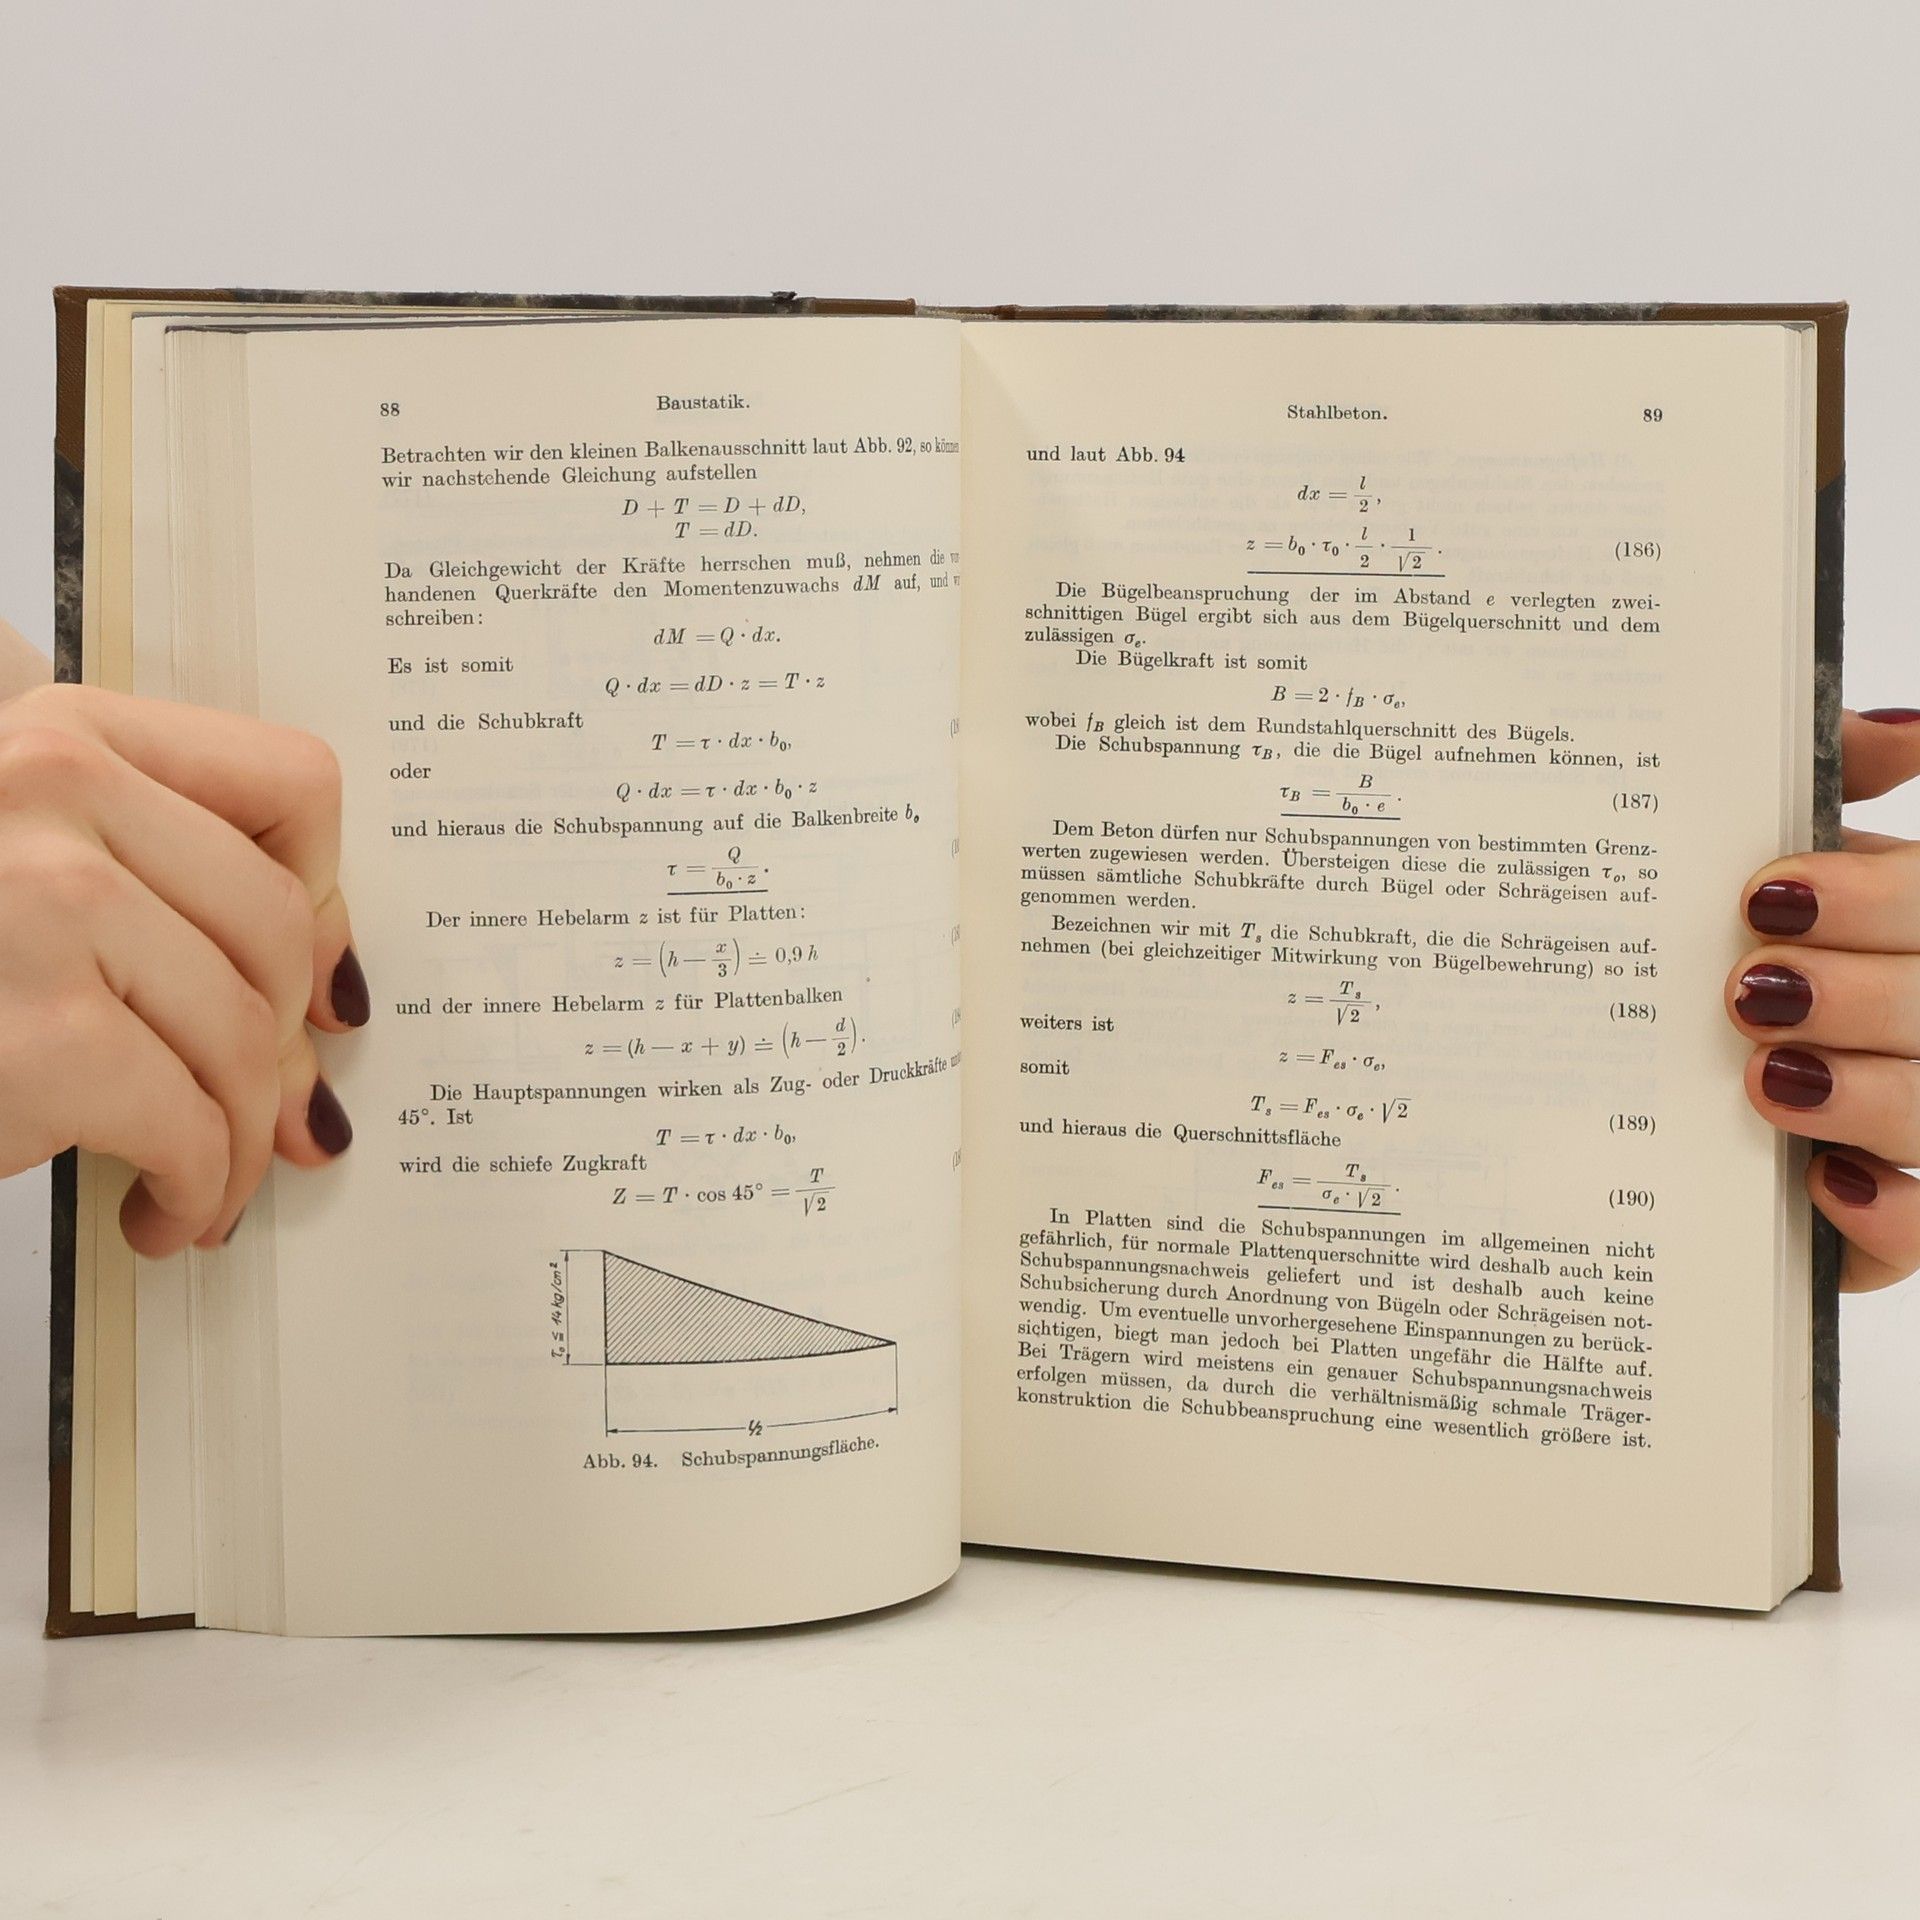 88 Baustatik.
Betrachten wir den kleinen Balkenausschnitt laut Abb. 92, so
wir nachstehende Gleichung aufstellen
D + T = D + dD,
T = dD.
Da Gleichgewicht der Kräfte herrschen muß, nehmen die
handenen Querkräfte den Momentenzuwachs dM auf, und
schreiben:
dM = Q · dx.
Es ist somit
Q · dx = dD · z = T · z
und die Schubkraft
T = τ · dx · b₀,
oder
Q · dx = τ · dx · b₀ · z
und hieraus die Schubspannung auf die Balkenbreite b₀
τ = Q / (b₀ · z).
Der innere Hebelarm z ist für Platten:
z = (h — x/3) ≐ 0,9 h
und der innere Hebelarm z für Plattenbalken
z = (h — x + y) ≐ (h — d/2).
Die Hauptspannungen wirken als Zug- oder Druckkräfte
45°. Ist
T = τ · dx · b₀,
wird die schiefe Zugkraft
Z = T · cos 45° = T/√2
τ₀ ≦ 14 kg/cm²
l/2
Abb. 94. Schubspannungsfläche.
Stahlbeton. 89
und laut Abb. 94
dx = l/2,
z = b₀ · τ₀ · l/2 · 1/√2. (186)
Die Bügelbeanspruchung der im Abstand e verlegten zwei-
schnittigen Bügel ergibt sich aus dem Bügelquerschnitt und dem
zulässigen σₑ.
Die Bügelkraft ist somit
B = 2 · f_B · σₑ,
wobei f_B gleich ist dem Rundstahlquerschnitt des Bügels.
Die Schubspannung τ_B, die die Bügel aufnehmen können, ist
τ_B = B / (b₀ · e). (187)
Dem Beton dürfen nur Schubspannungen von bestimmten Grenz-
werten zugewiesen werden. Übersteigen diese die zulässigen τ₀, so
müssen sämtliche Schubkräfte durch Bügel oder Schrägeisen auf-
genommen werden.
Bezeichnen wir mit Tₛ die Schubkraft, die die Schrägeisen auf-
nehmen (bei gleichzeitiger Mitwirkung von Bügelbewehrung) so ist
z = Tₛ/√2, (188)
weiters ist
z = Fₑₛ · σₑ,
somit
Tₛ = Fₑₛ · σₑ · √2 (189)
und hieraus die Querschnittsfläche
Fₑₛ = Tₛ / (σₑ · √2). (190)
In Platten sind die Schubspannungen im allgemeinen nicht
gefährlich, für normale Plattenquerschnitte wird deshalb auch kein
Schubspannungsnachweis geliefert und ist deshalb auch keine
Schubsicherung durch Anordnung von Bügeln oder Schrägeisen not-
wendig. Um eventuelle unvorhergesehene Einspannungen zu berück-
sichtigen, biegt man jedoch bei Platten ungefähr die Hälfte auf.
Bei Trägern wird meistens ein genauer Schubspannungsnachweis
erfolgen müssen, da durch die verhältnismäßig schmale Träger-
konstruktion die Schubbeanspruchung eine wesentlich größere ist.